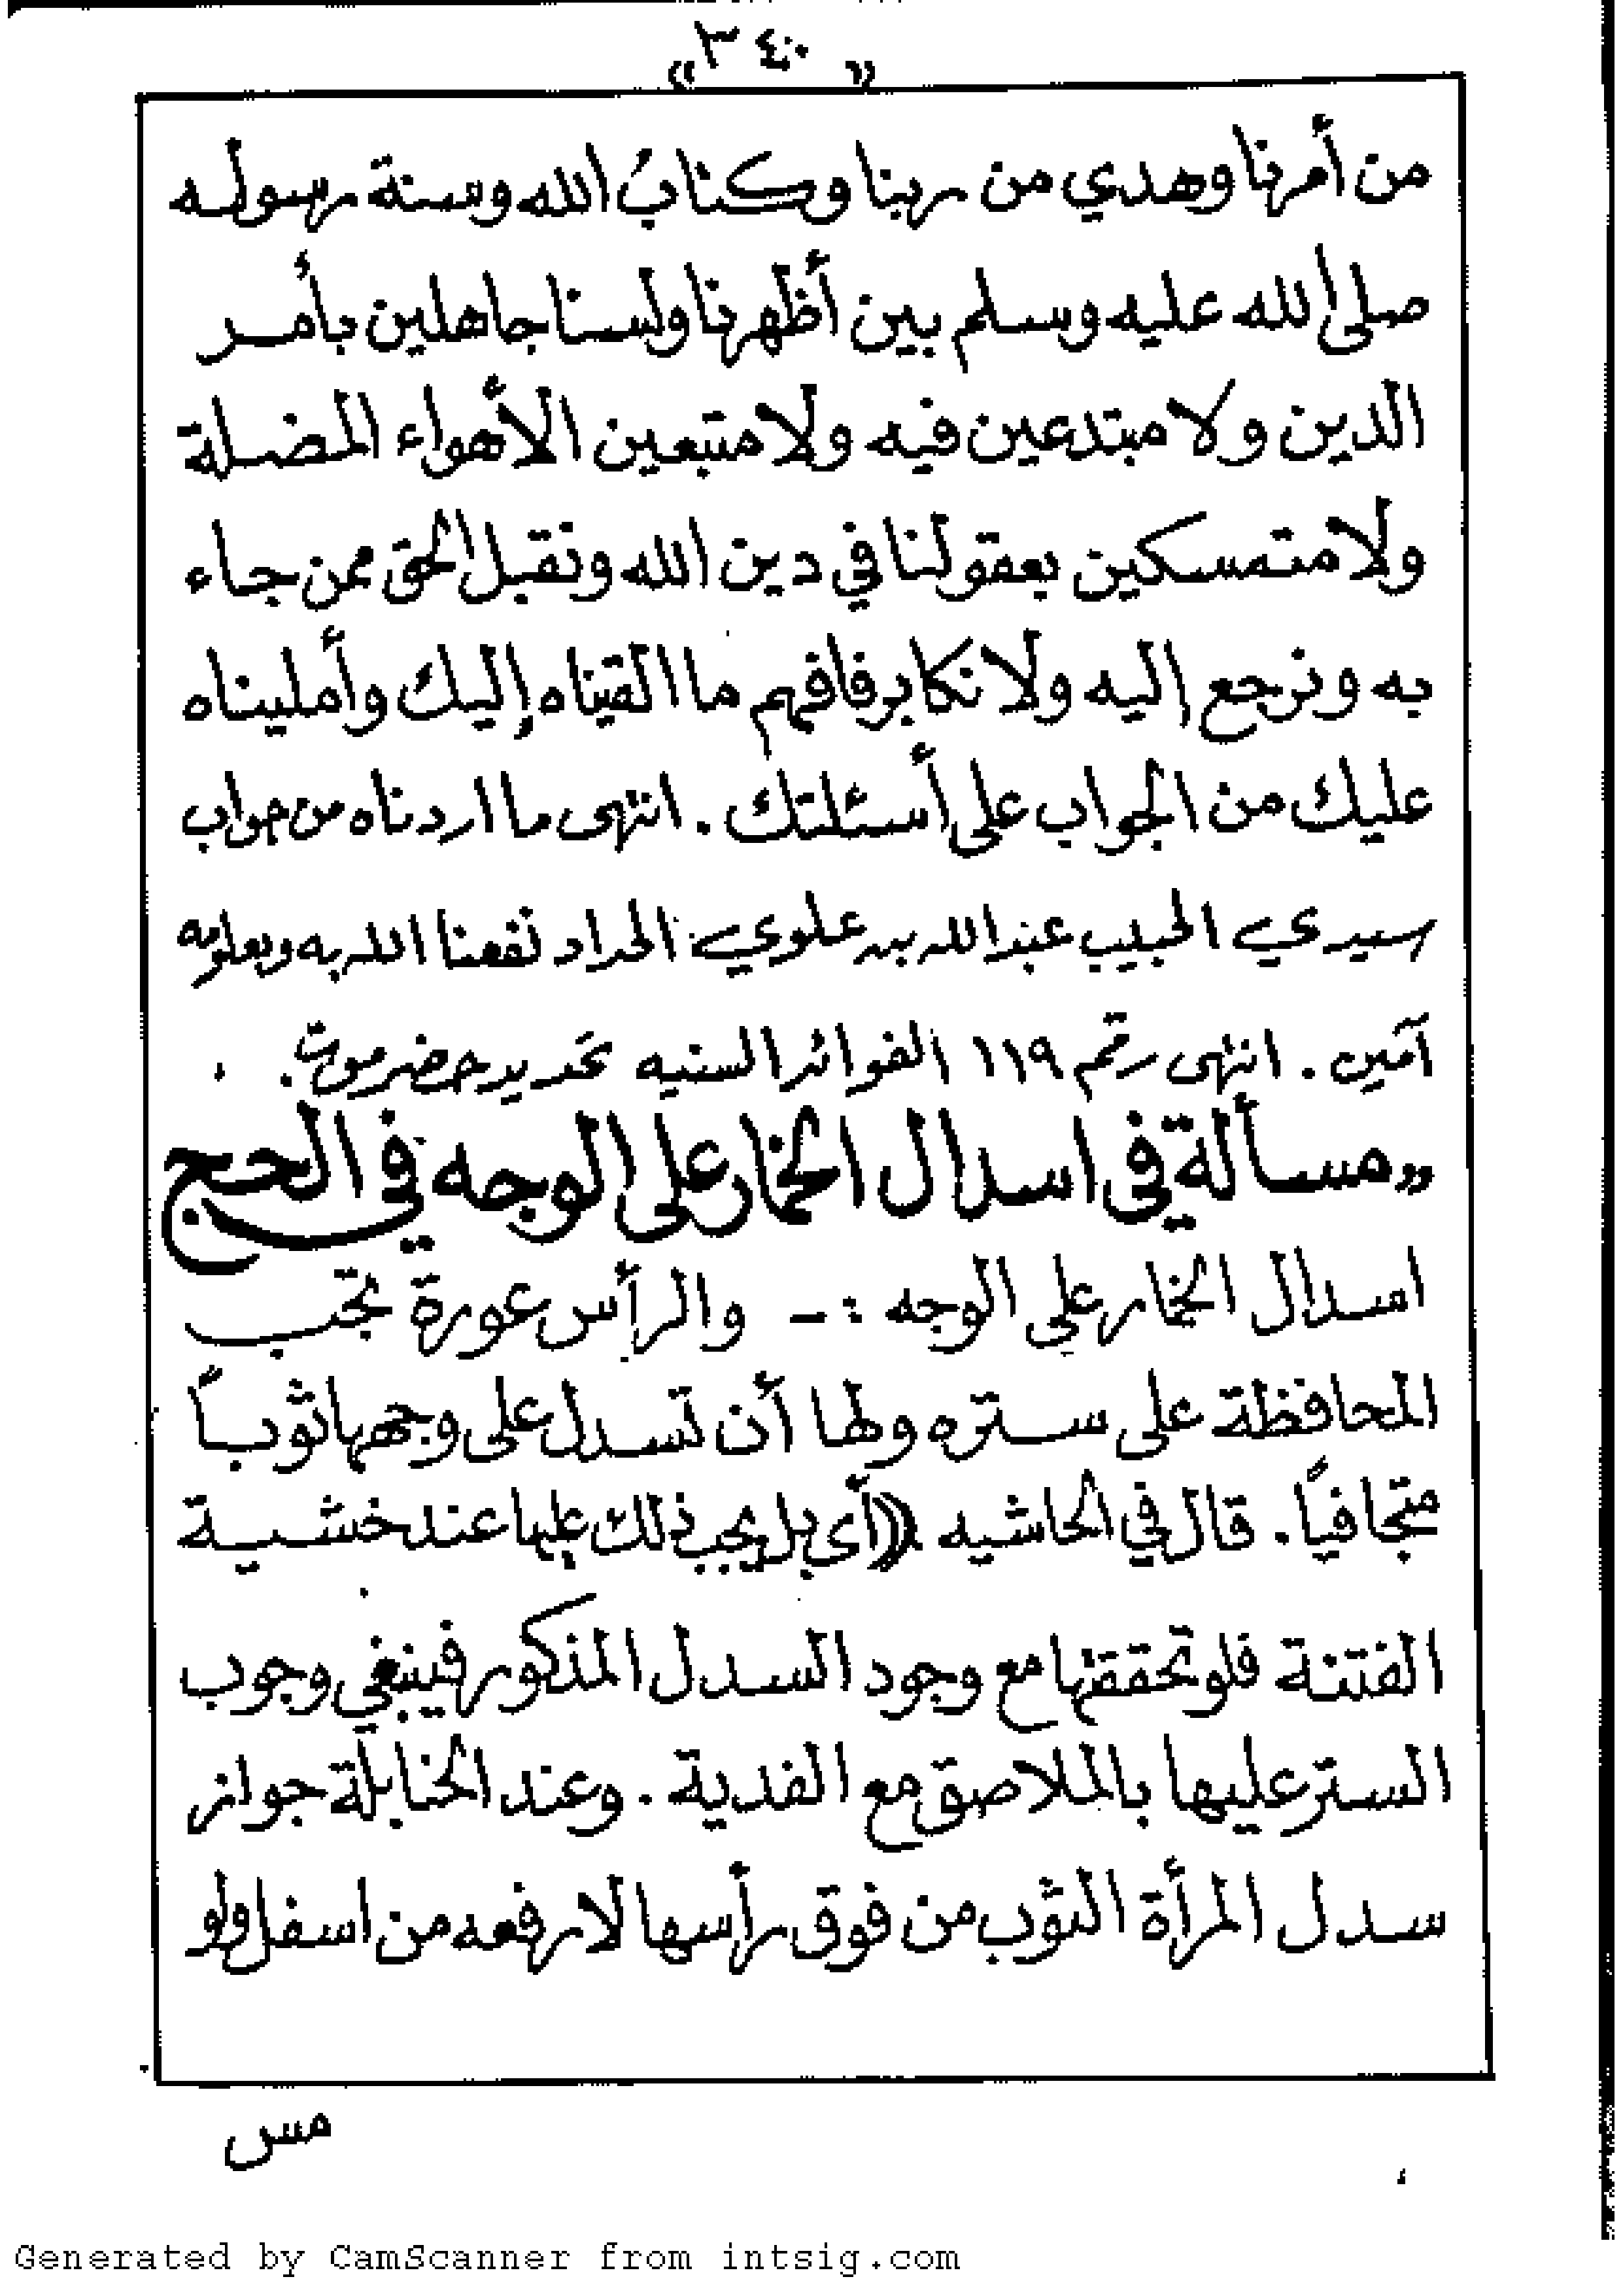 « ٣٤٠ »
من أمرنا وهدي من ربنا وكتابُ الله وسنة رسوله
صلى الله عليه وسلم بين أظهرنا ولسنا جاهلين بأمر
الدين ولا مبتدعين فيه ولا متبعين الأهواء المضلة
ولا متمسكين بعقولنا في دين الله ونقبل الحق ممن جاء
به ونرجع إليه ولا نكابر فافهم ما القيناه إليك وأمليناه
عليك من الجواب على أسئلتك . انتهى ما اردناه من جواب
سيدي الحبيب عبدالله بن علوي الحداد نفعنا الله به وبعلومه
آمين . انتهى رقم ١١٩ الفوائد السنيه تحديد حضرموت .
«مسألة في اسدال الخمار على الوجه في الحج
اسدال الخمار على الوجه :- والرأس عورة تجب
المحافظة على ستره ولها أن تسدل على وجهها ثوباً
متجافياً . قال في الحاشيه ((أي بل يجب ذلك عليها عند خشية
الفتنة فلو تحققتها مع وجود السدل المذكور فينبغي وجوب
الستر عليها بالملاصق مع الفدية . وعند الحنابلة جواز
سدل المرأة الثوب من فوق رأسها لا رفعه من اسفل ولو
مس
Generated by CamScanner from intsig.com